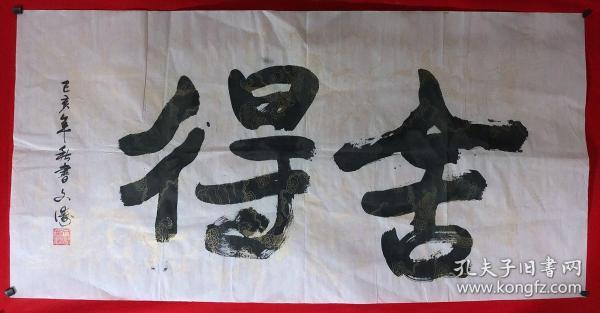 舍得
己亥年秋書文
孔夫子旧書网
www.kongfz.com